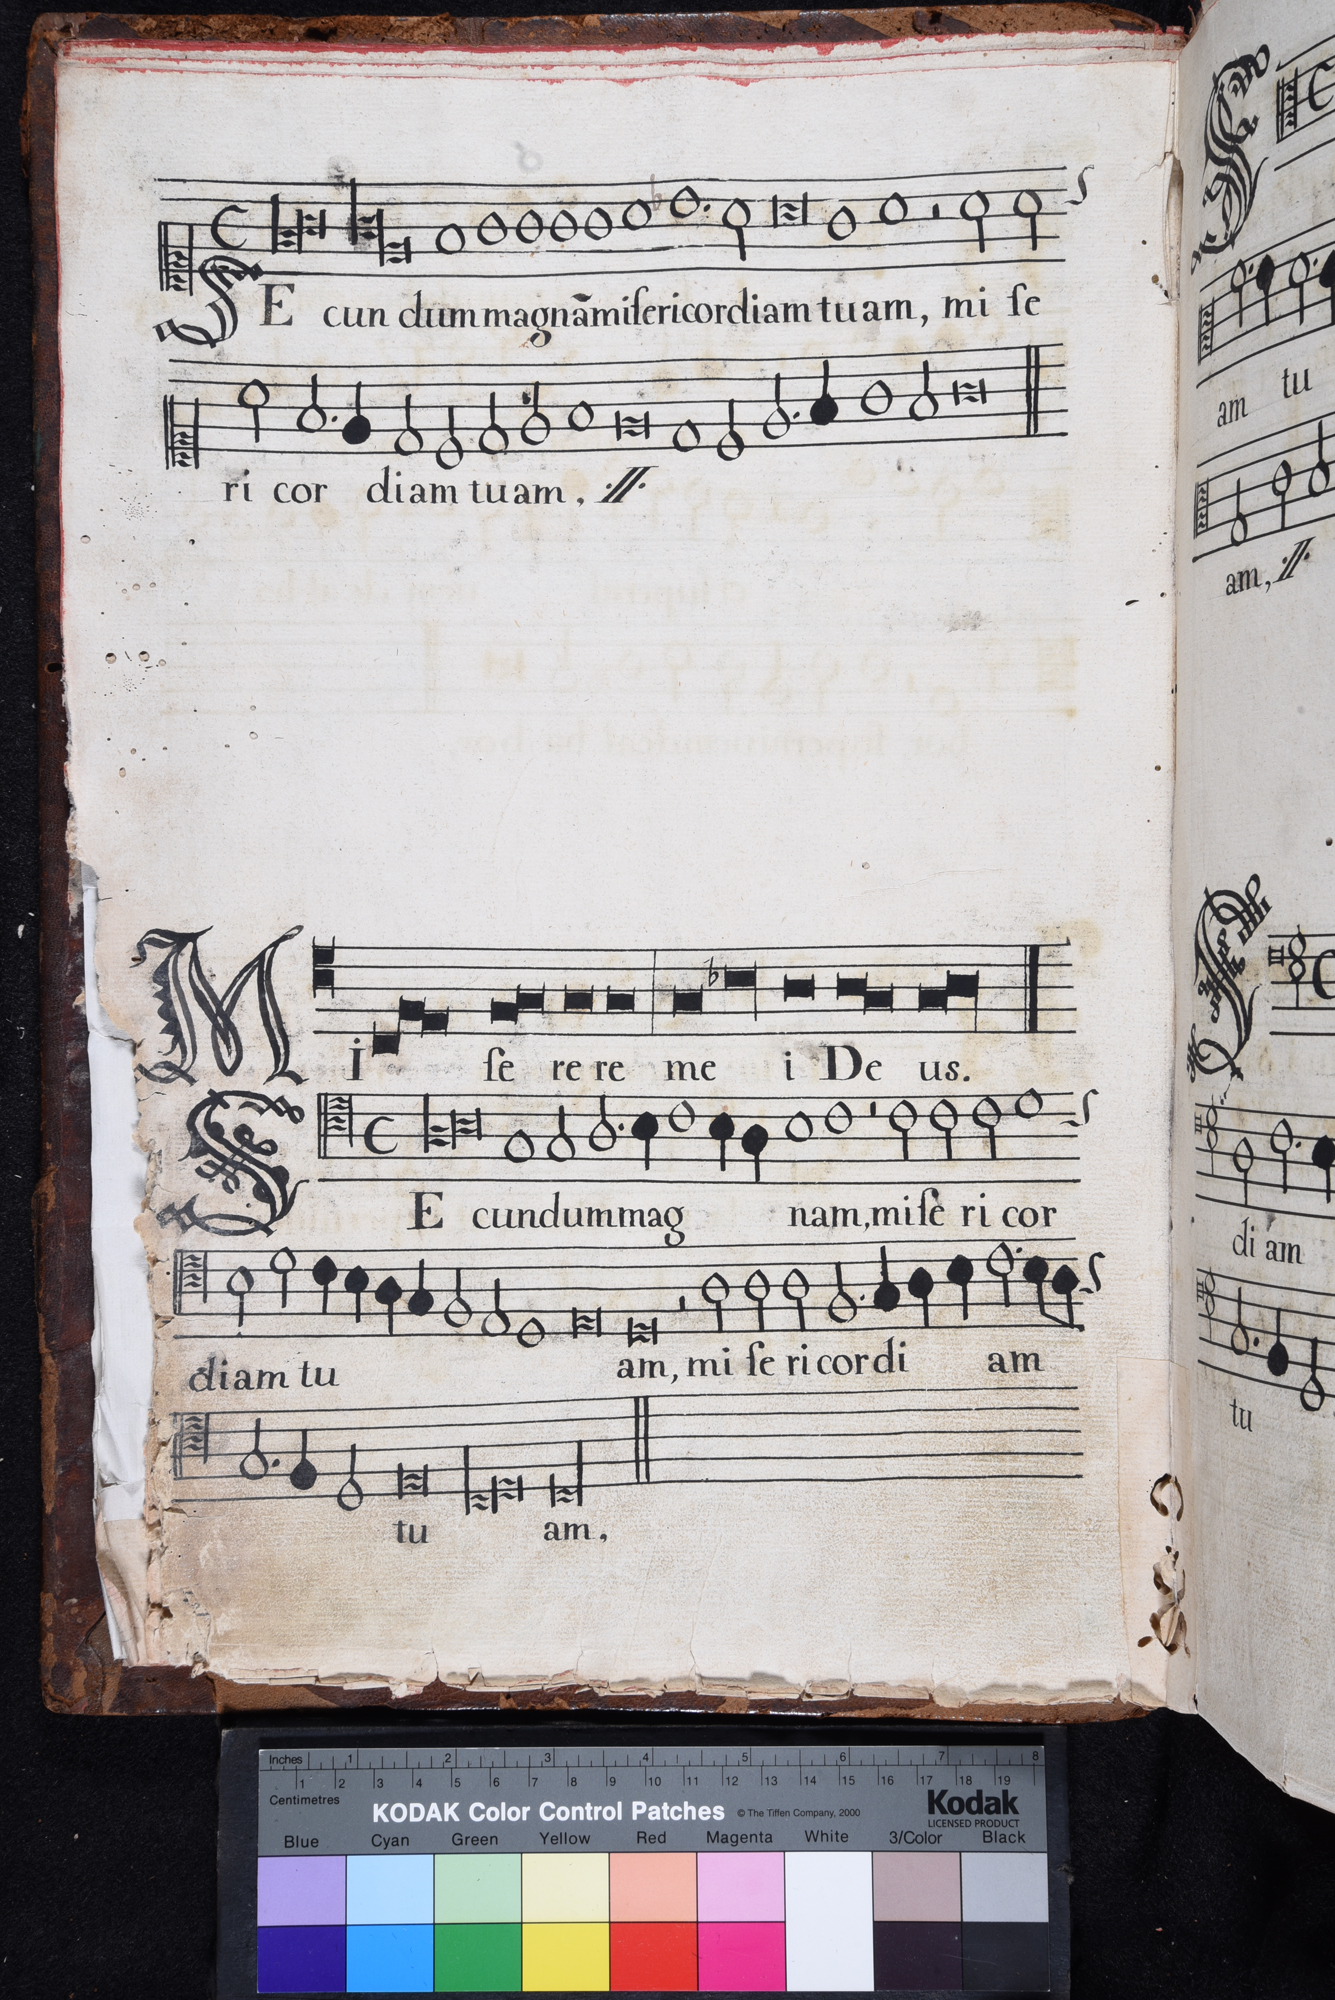 SE cun dum magnā miſericordiam tuam, mi ſe
ri cor diam tuam, //.
Mi ſe re re me i De us.
SE cundum mag nam, miſe ri cor
diam tu am, mi ſe ri cor di am
tu am,
am tu
am, //.
di am
tu
Inches 1 2 3 4 5 6 7 8
Centimetres 1 2 3 4 5 6 7 8 9 10 11 12 13 14 15 16 17 18 19
KODAK Color Control Patches © The Tiffen Company, 2000 Kodak
LICENSED PRODUCT
Blue Cyan Green Yellow Red Magenta White 3/Color Black